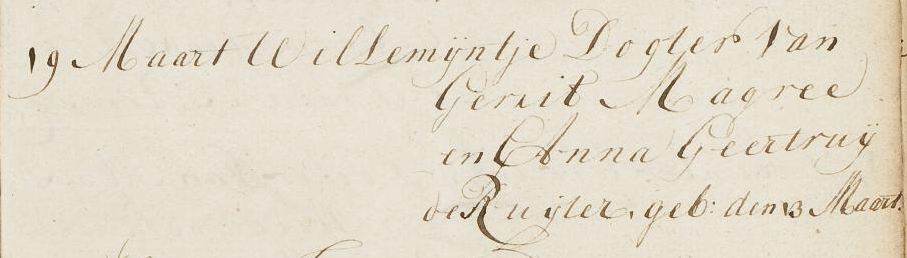 19 Maart Willemijntje Dogter van
Gerrit Magree
en Anna Geertruy
de Ruijter. geb: den 13 Maart.